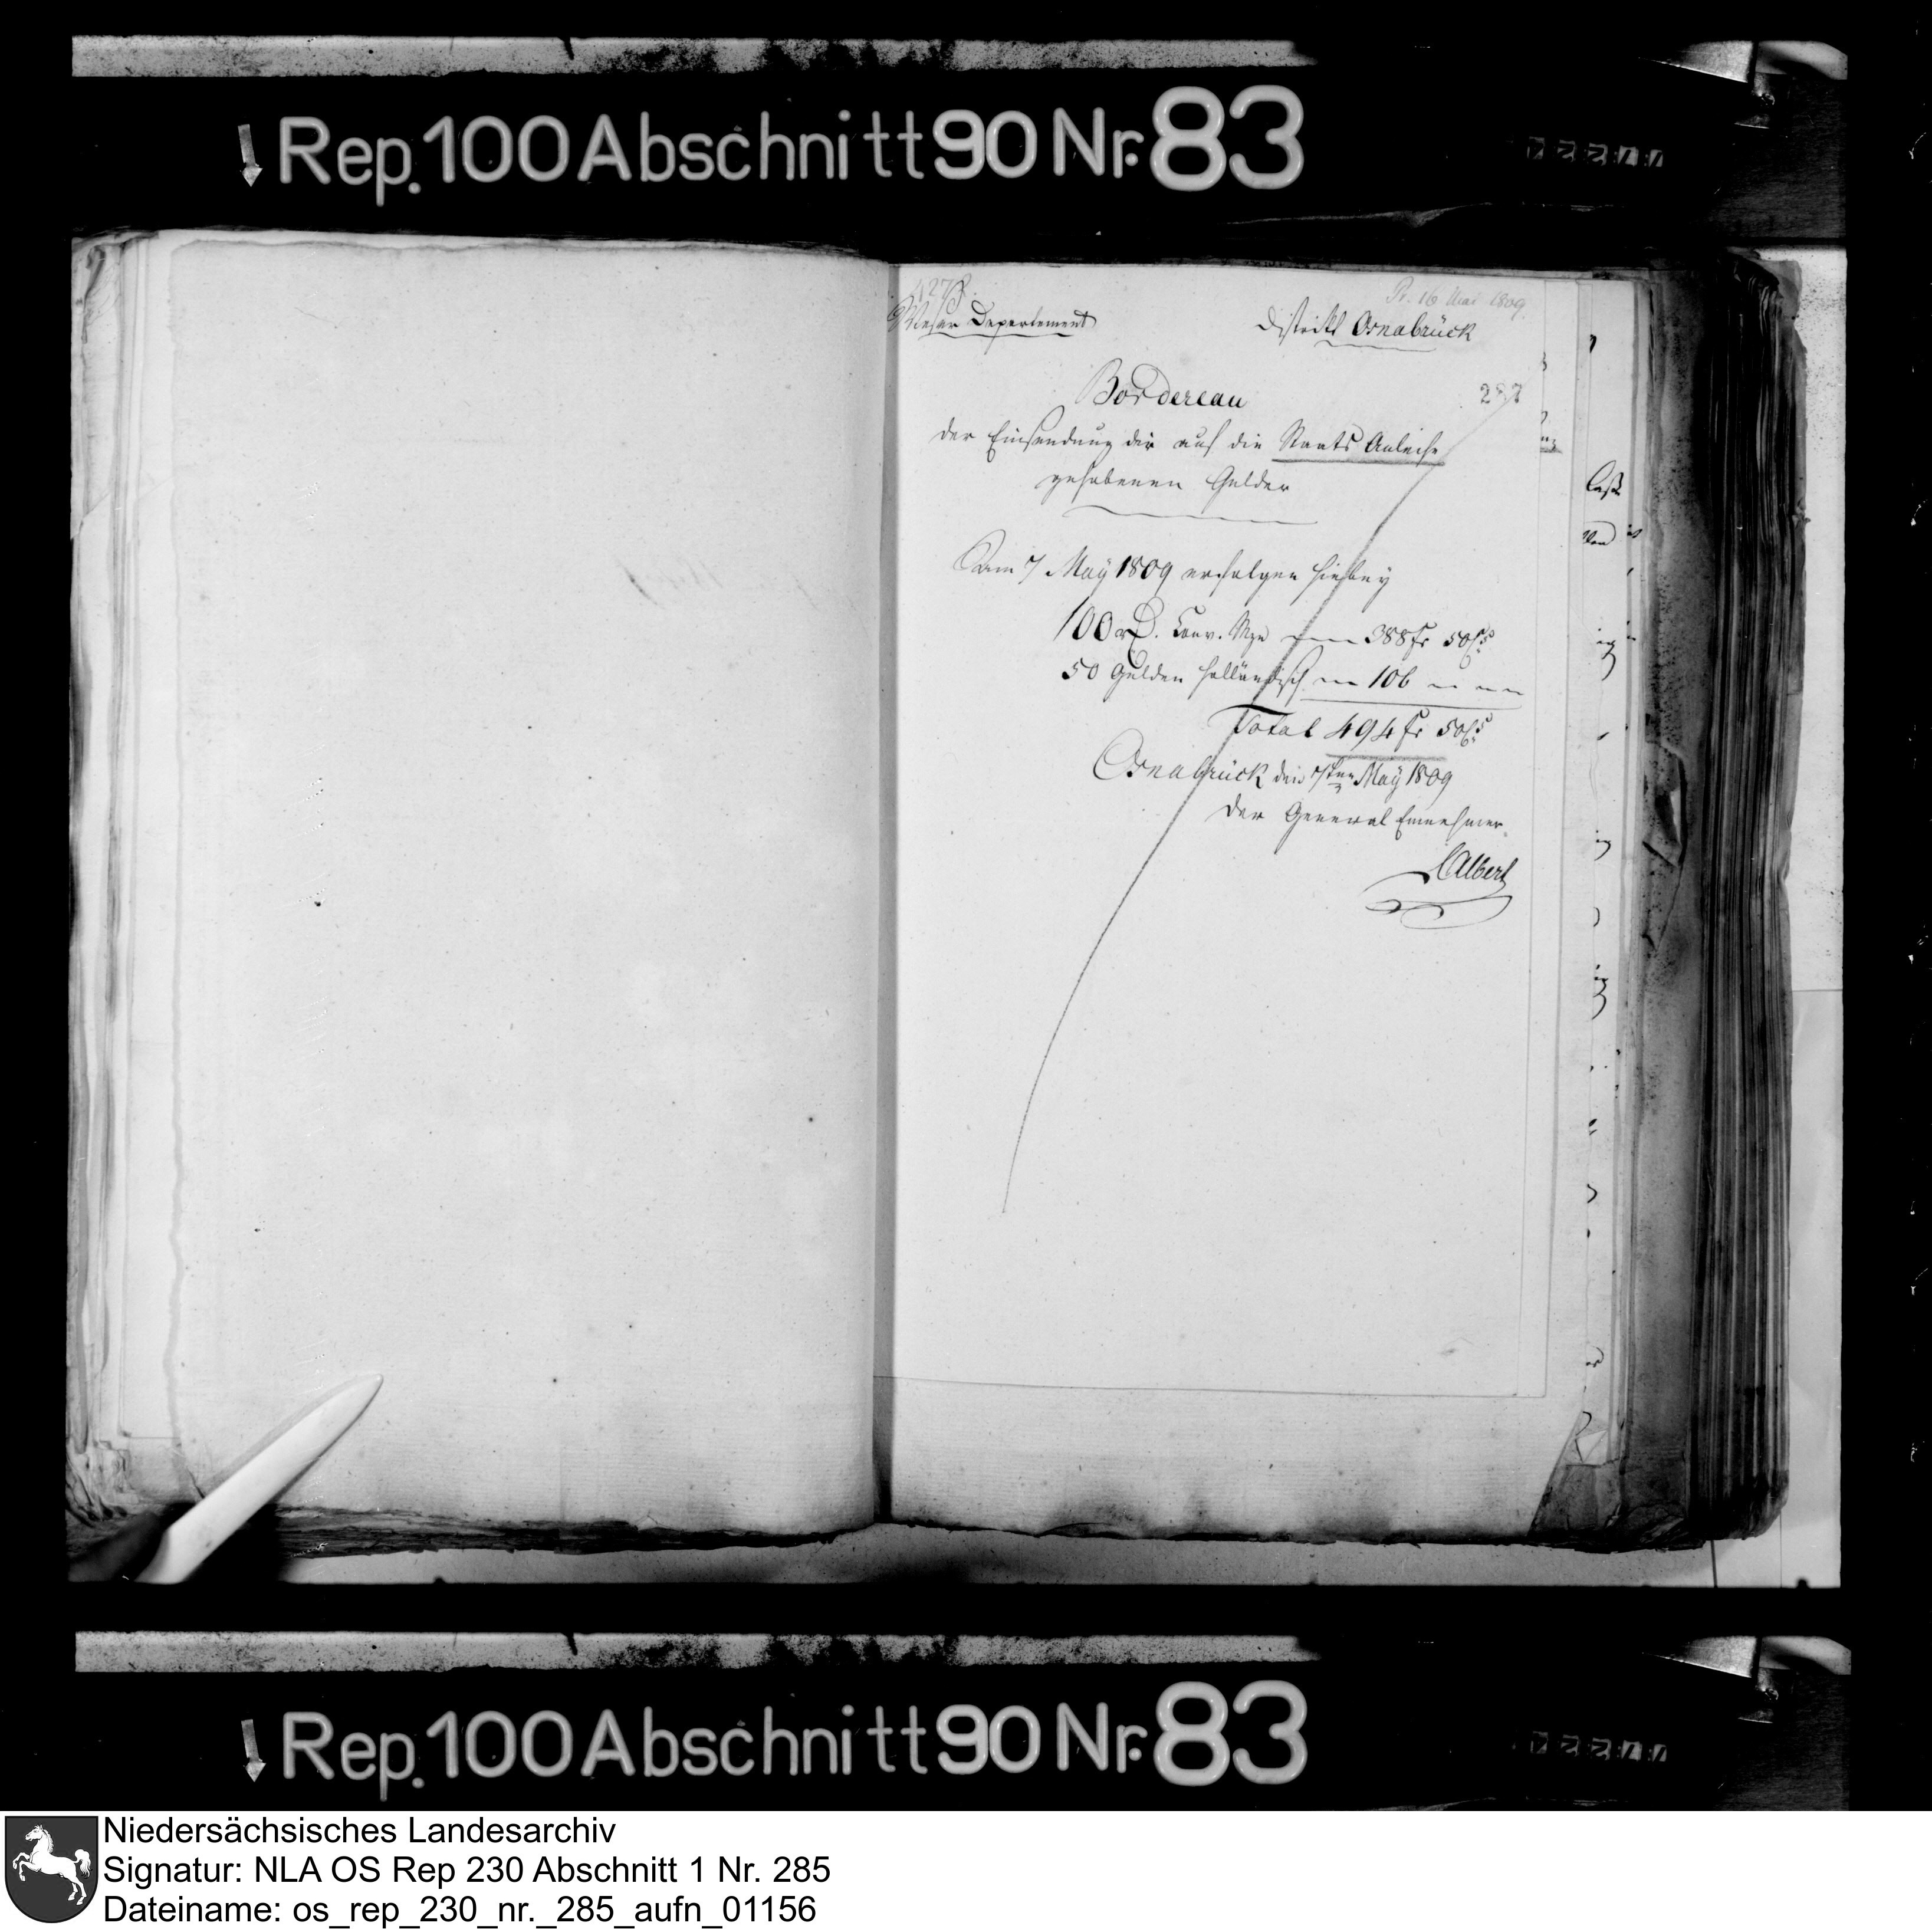 Rep. 100 Abschnitt 90 Nr. 83
4278.
Pr. 16 Mai 1809.
Weser Departement
District Osnabrück
287
Bordereau
der Einsendung der auf die Staats Anleihe
gehobenen Gelder
Am 7 May 1809 erfolgen hiebey
100 rD. Conv. Mze 388 fr 50 Cs
50 Gulden holländisch 106
Total 494 fr 50 Cs
Osnabrück den 7ten May 1809
Der General Einnehmer
CAlbert
Rep. 100 Abschnitt 90 Nr. 83
Niedersächsisches Landesarchiv
Signatur: NLA OS Rep 230 Abschnitt 1 Nr. 285
Dateiname: os_rep_230_nr._285_aufn_01156